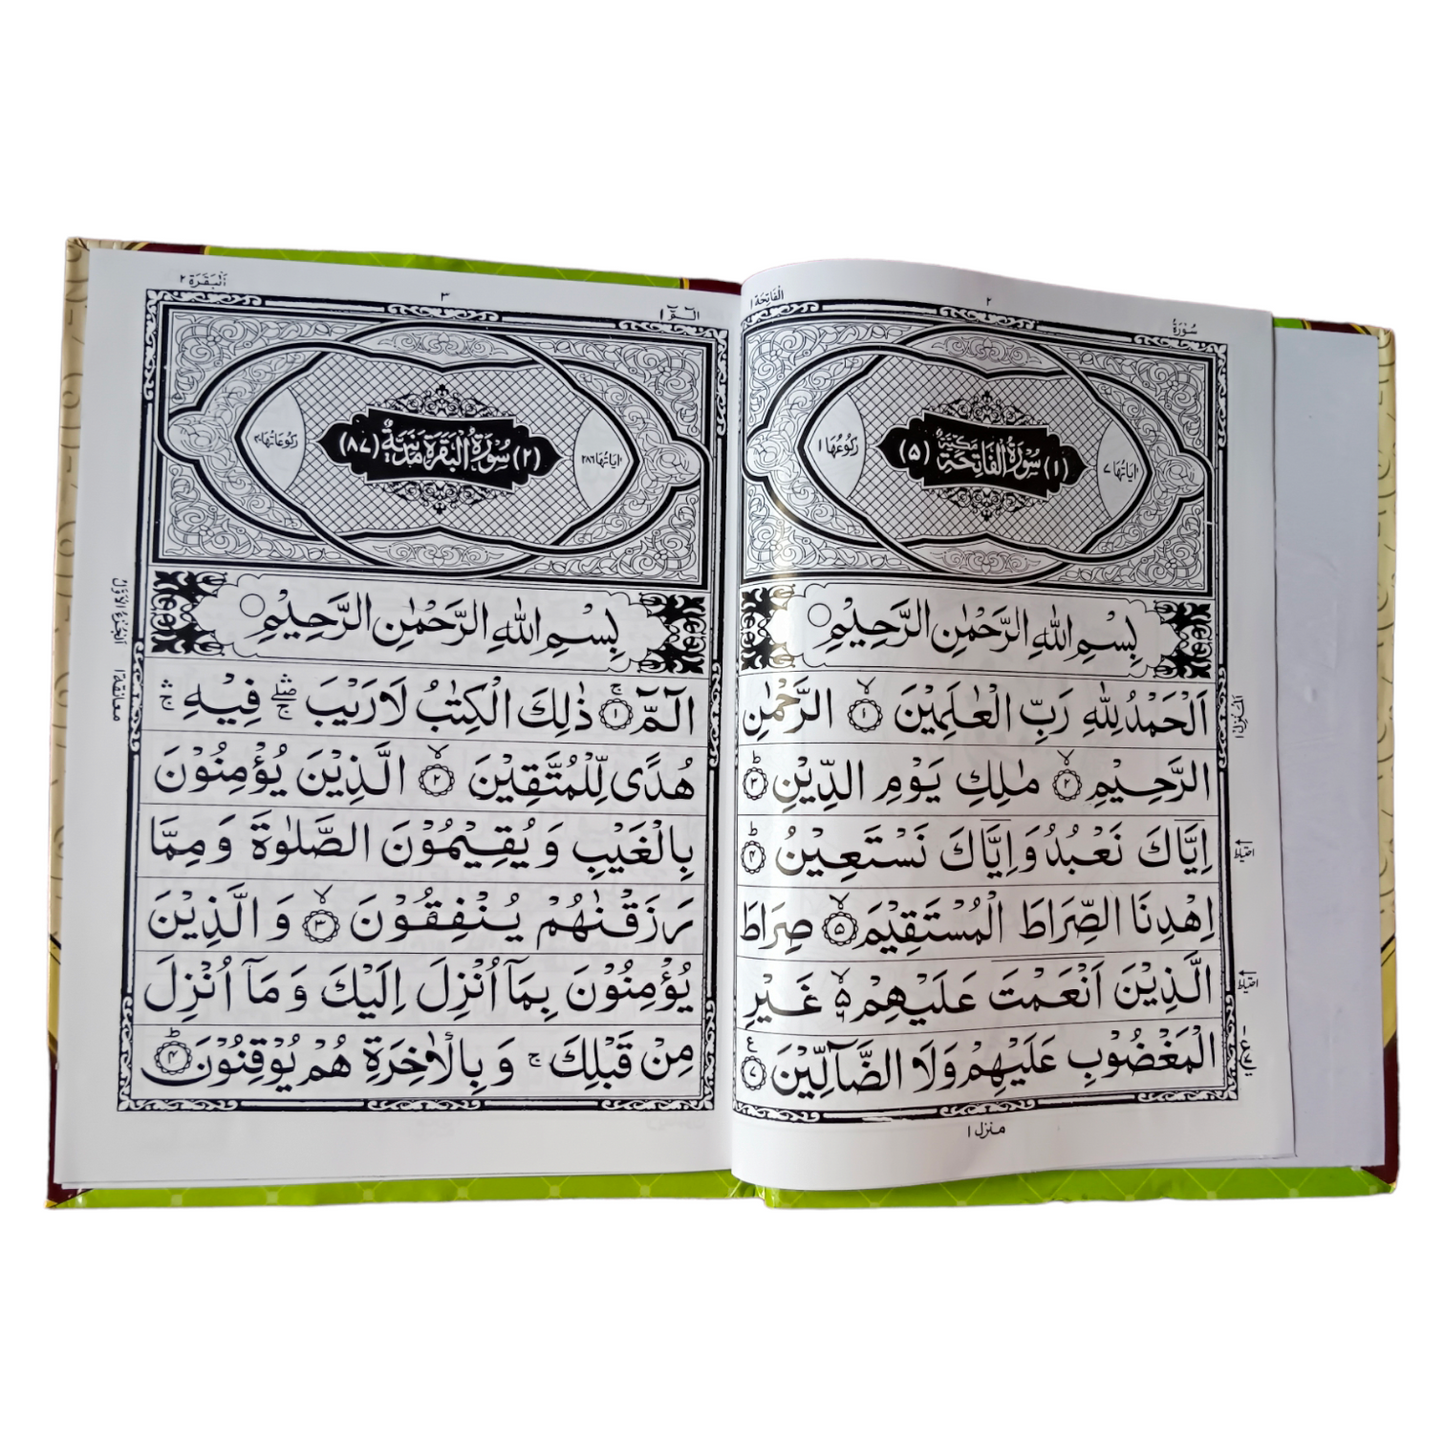 سُوْرَةُ
٢
اَلْفَاتِحَة ١
اٰيَاتُهَا ٧
(١) سُوْرَةُ الْفَاتِحَةِ مَكِّيَّةٌ (٥)
رُكُوْعُهَا ١
بِسْمِ اللّٰهِ الرَّحْمٰنِ الرَّحِيْمِ
اَلْحَمْدُ لِلّٰهِ رَبِّ الْعٰلَمِيْنَ ۙ١ الرَّحْمٰنِ
الرَّحِيْمِ ۙ٢ مٰلِكِ يَوْمِ الدِّيْنِ ؕ٣
اِيَّاكَ نَعْبُدُ وَاِيَّاكَ نَسْتَعِيْنُ ؕ٤
اِهْدِنَا الصِّرَاطَ الْمُسْتَقِيْمَ ۙ٥ صِرَاطَ
الَّذِيْنَ اَنْعَمْتَ عَلَيْهِمْ ۙ۵ غَيْرِ
الْمَغْضُوْبِ عَلَيْهِمْ وَلَا الضَّآلِّيْنَ ٧ ع
اَلْمَنْزِل ١
احتياط
احتياط
منزل ١
الٓمّٓ ١
٣
اَلْبَقَرَة ٢
اٰيَاتُهَا ٢٨٦
(٢) سُوْرَةُ الْبَقَرَةِ مَدَنِيَّةٌ (٨٧)
رُكُوْعَاتُهَا ٤٠
بِسْمِ اللّٰهِ الرَّحْمٰنِ الرَّحِيْمِ
الٓمّٓ ۚ١ ذٰلِكَ الْكِتٰبُ لَا رَيْبَ ۛۖۚ فِيْهِ ۛۚ
هُدًى لِّلْمُتَّقِيْنَ ۙ٢ الَّذِيْنَ يُؤْمِنُوْنَ
بِالْغَيْبِ وَيُقِيْمُوْنَ الصَّلٰوةَ وَمِمَّا
رَزَقْنٰهُمْ يُنْفِقُوْنَ ۙ٣ وَالَّذِيْنَ
يُؤْمِنُوْنَ بِمَآ اُنْزِلَ اِلَيْكَ وَمَآ اُنْزِلَ
مِنْ قَبْلِكَ ۚ وَبِالْاٰخِرَةِ هُمْ يُوْقِنُوْنَ ؕ٤
اَلْجُزْءُ الْاَوَّلُ
معانقة ١